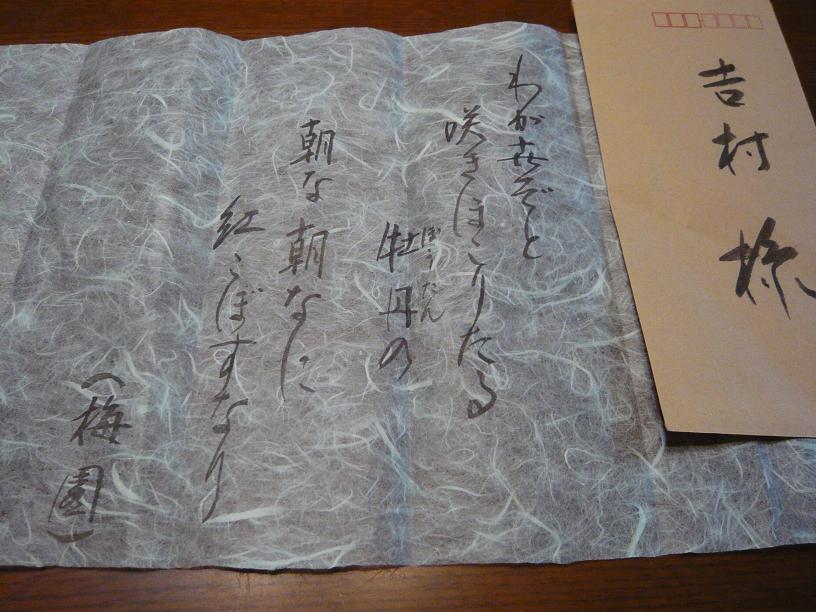 吉村様
わが世ぞと
咲きほこりたる
ぼうたん
牡丹の
朝な朝なに
紅こぼすなり
(梅園)